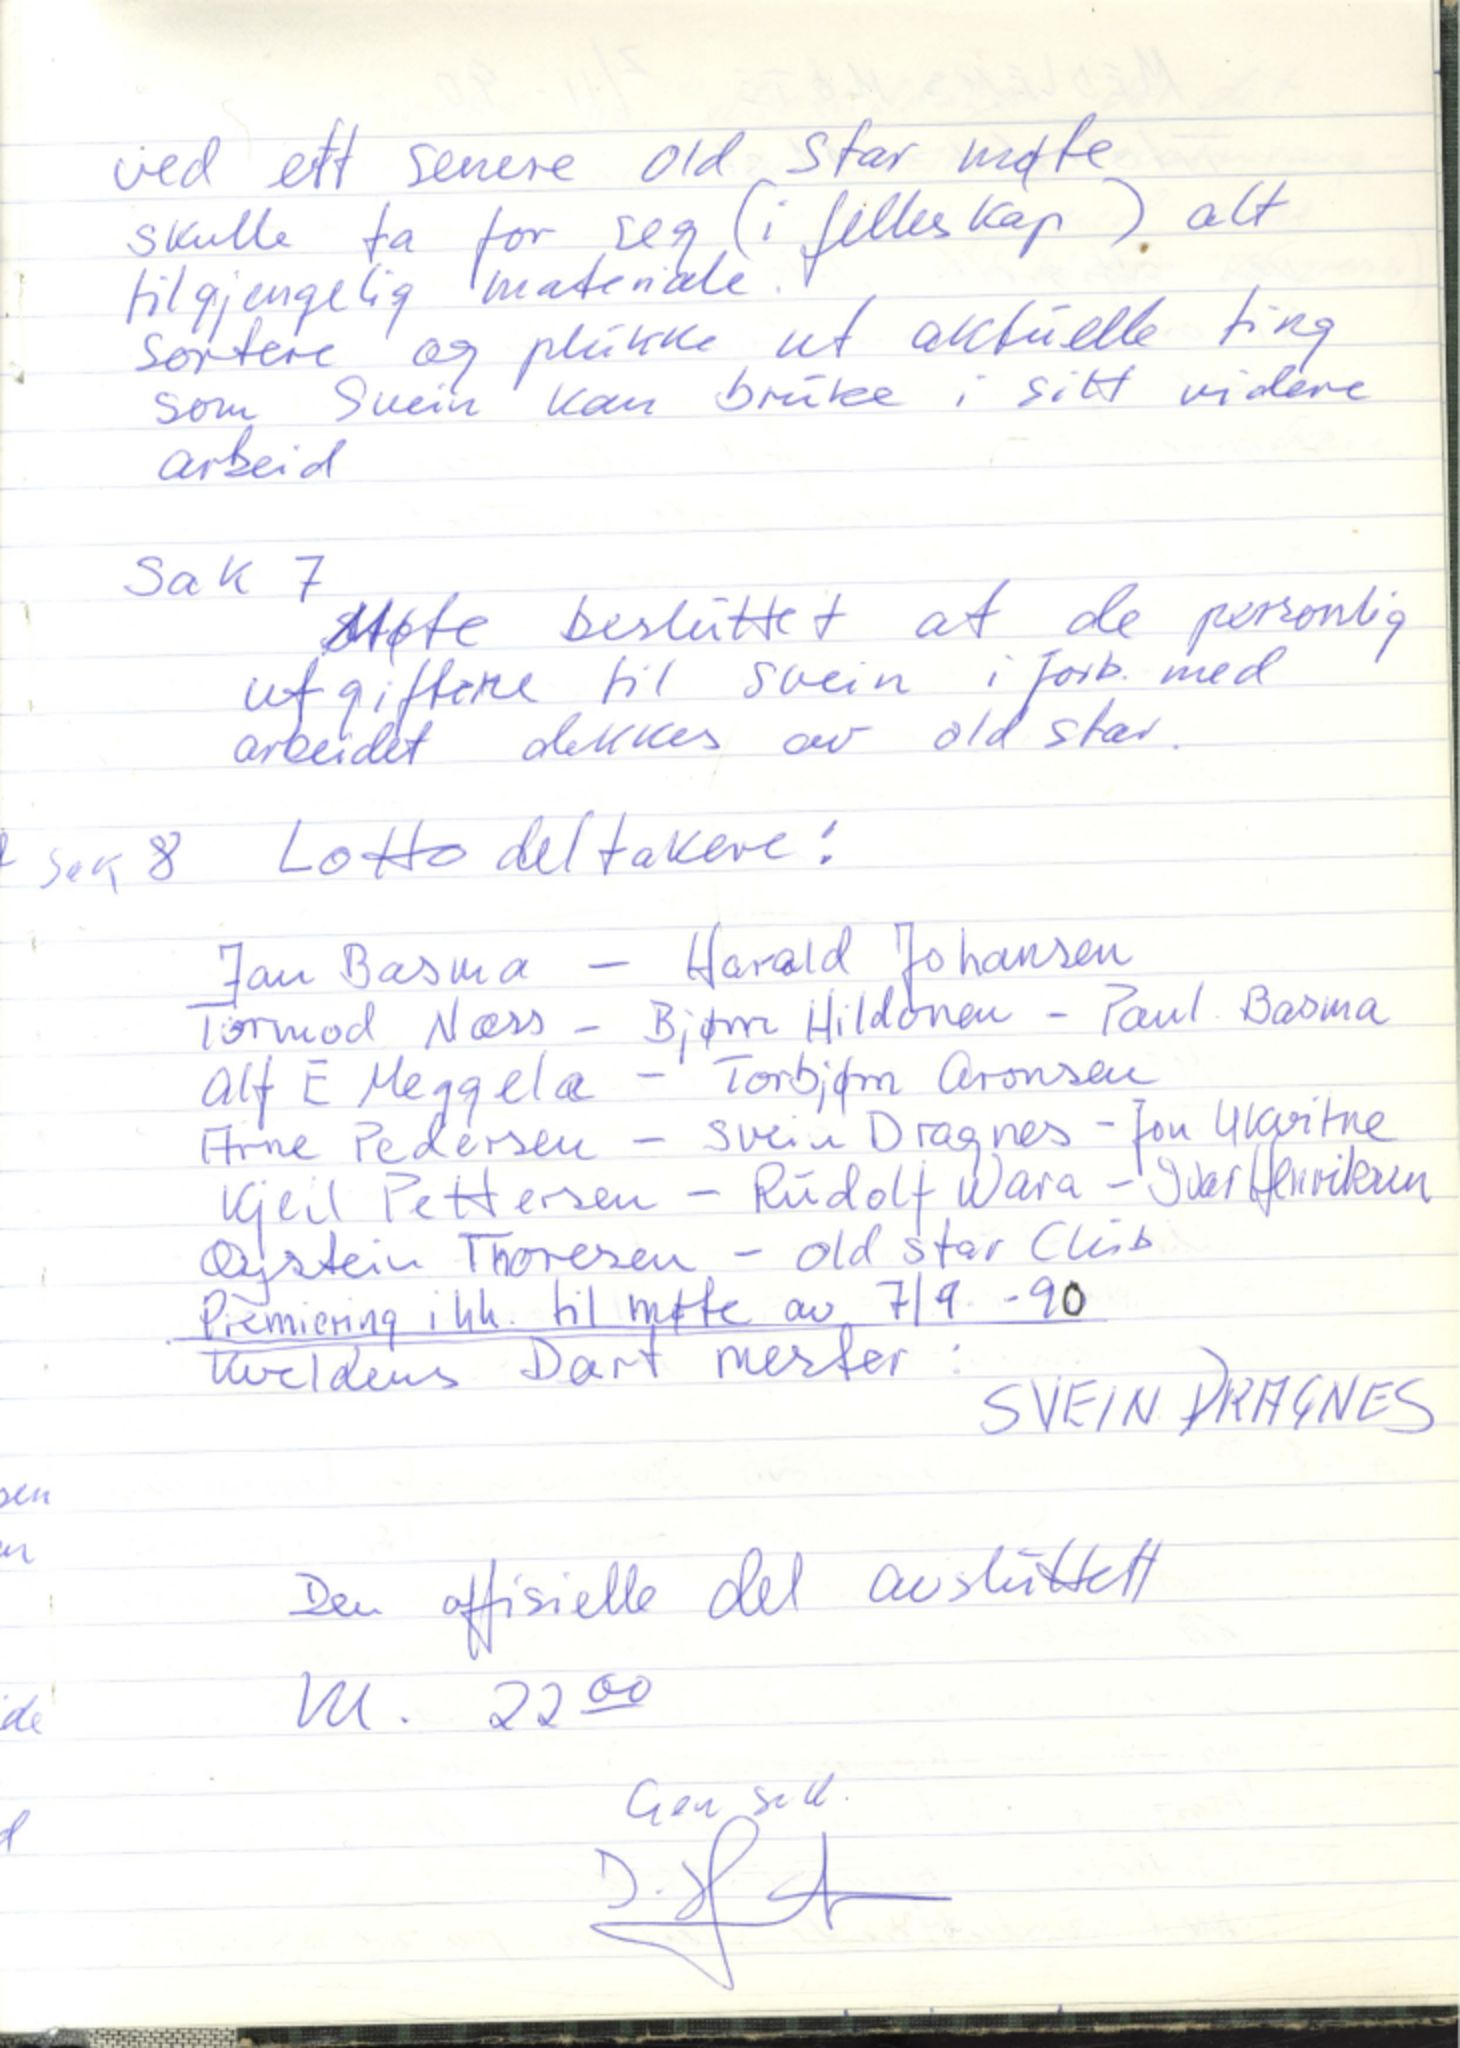 ved ett senere old star møte
skulle ta for seg (i felleskap) alt
tilgjengelig materiale.
Sortere og plukke ut aktuelle ting
som Svein kan bruke i sitt videre
arbeid
Sak 7
Møte besluttet at de personlig
utgiftene til Svein i forb. med
arbeidet dekkes av old star.
Sak 8 Lotto deltakere:
Jan Basma - Harald Johansen
Tormod Næss - Bjørn Hildonen - Paul Basma
Alf E Meggela - Torbjørn Aronsen
Arne Pedersen - Svein Dragnes - Jon
Kjell Pettersen - Rudolf Wara - Ivar Henriksen
Øystein Thoresen - old star Club
Premiering i hh. til møte av 7/9 -90
Kveldens Dart mester:
SVEIN DRAGNES
Den offisielle del avsluttett
kl. 22 00
Gen sekr.